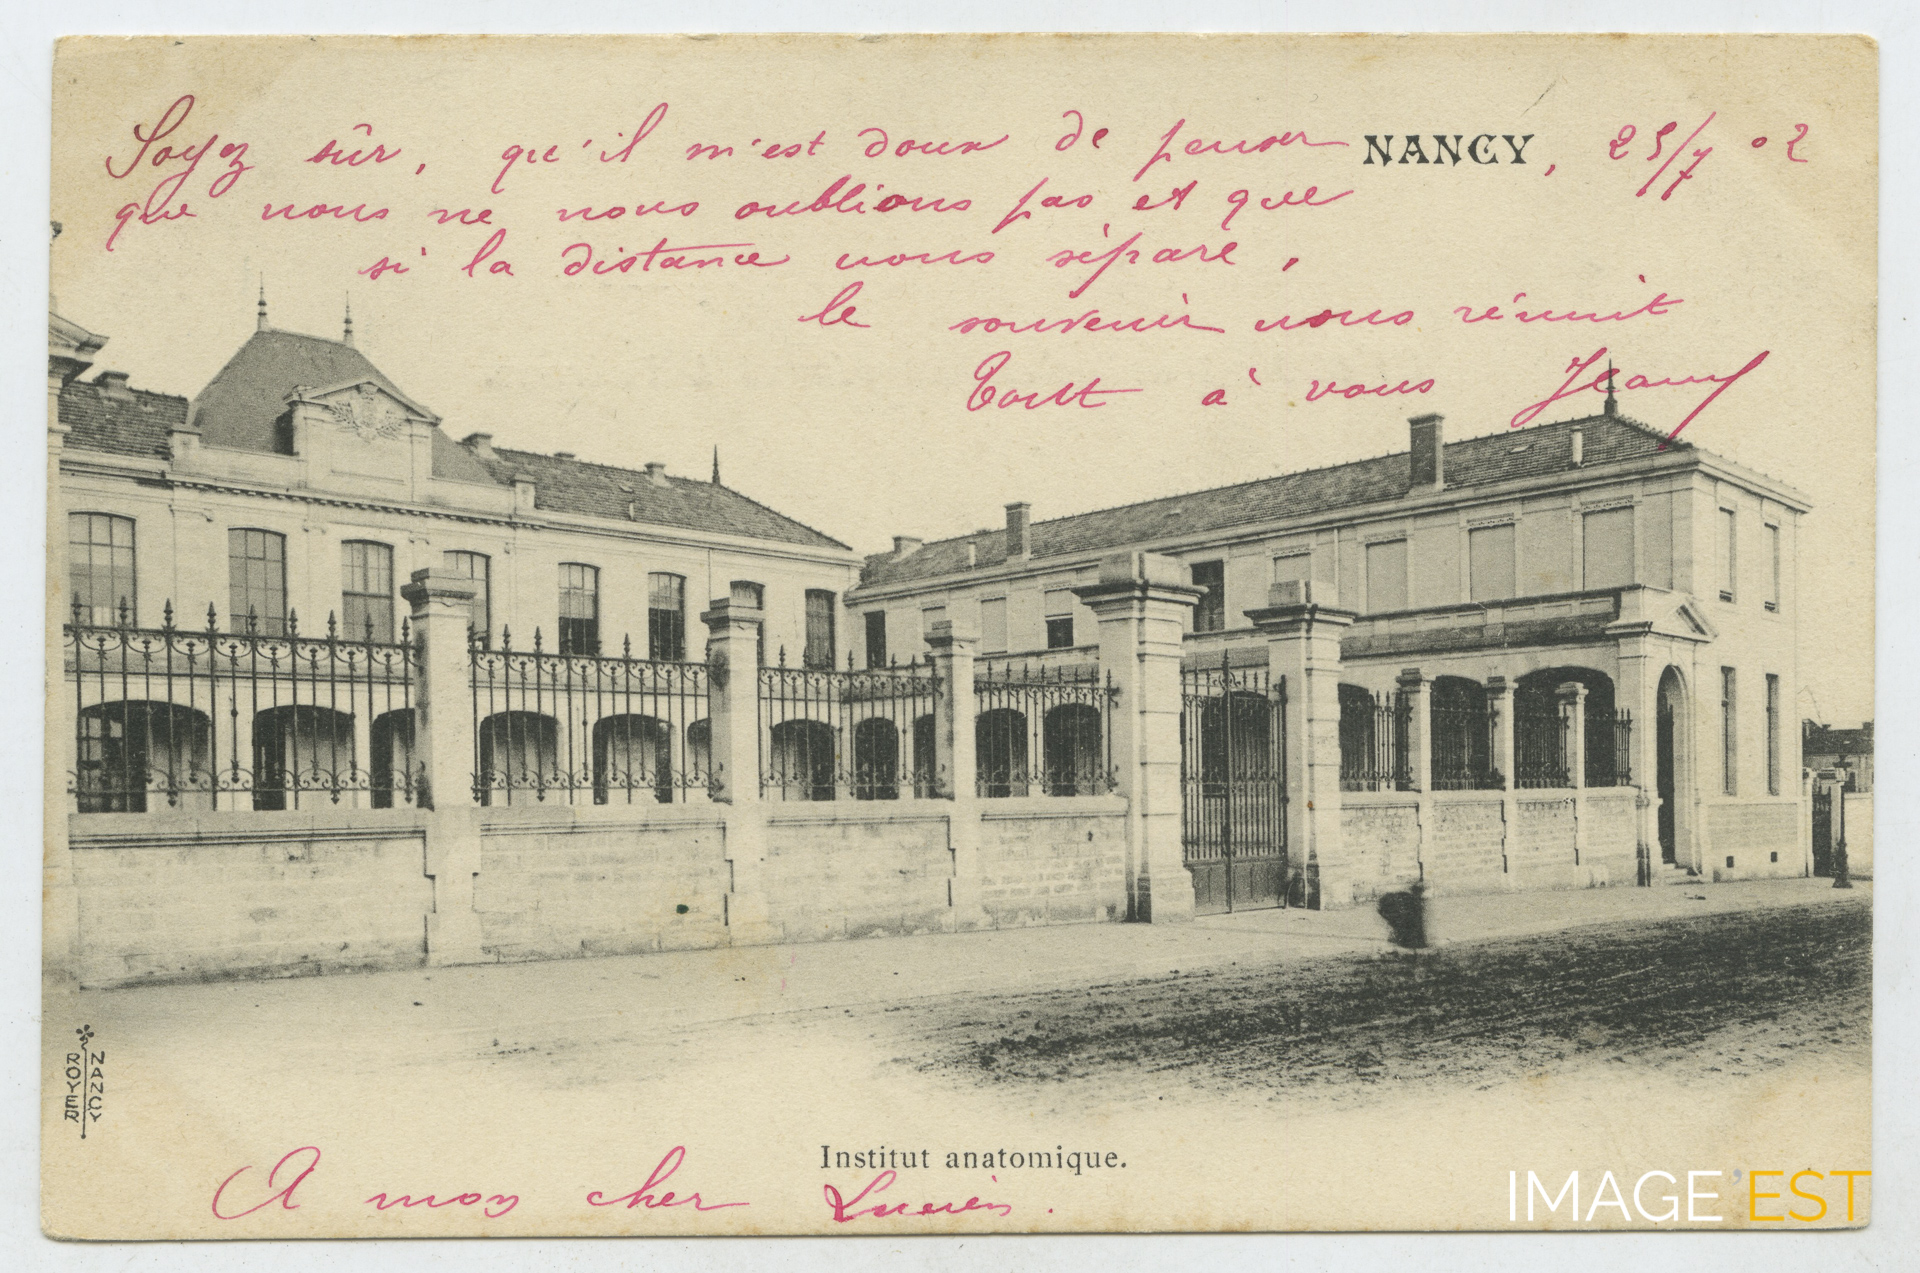 Soyez sûr, qu'il m'est doux de penser NANCY, 25/7 02
que nous ne nous oublions pas et que
si la distance nous sépare,
le souvenir nous réunit
Tout à vous Jeany
ROYER
NANCY
Institut anatomique.
A mon cher Lucien.
IMAGE'EST